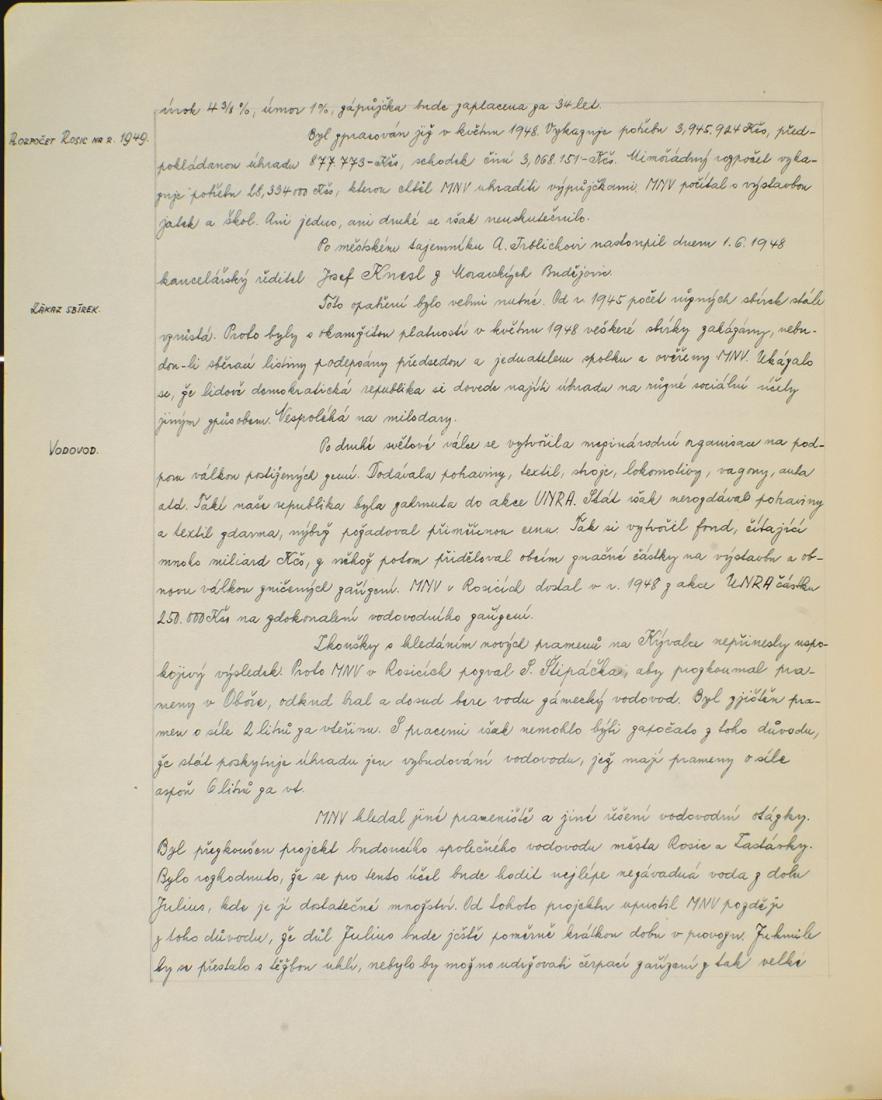 úrok 4 3/8 %, úmor 1%, zápůjčka bude zaplacena za 34 let.
ROZPOČET ROSIC NA R. 1949.
Byl zpracován již v květnu 1948. Vykazuje potřebu 3,945.924 Kčs, před-
pokládanou úhradu 877.773 - Kčs, schodek činí 3,068.151 - Kčs. Mimořádný rozpočet vyka-
zuje potřebu 28,334 000 Kčs, kterou chtěl MNV uhraditi výpůjčkami. MNV počítal s výstavbou
jatek a škol. Ani jedno, ani druhé se však neuskutečnilo.
Po městském tajemníku A. Trblichovi nastoupil dnem 1. 6. 1948
kancelářský ředitel Josef Knesl z Moravských Budějovic.
ZÁKAZ SBÍREK.
Toto opatření bylo velmi nutné. Od r. 1945 počet různých sbírek stále
vzrůstá. Proto byly s okamžitou platností v květnu 1948 veškeré sbírky zakázány, nebu-
dou-li sběrací listiny podepsány předsedou a jednatelem spolku a ověřeny MNV. Ukázalo
se, že lidově demokratická republika si dovede najíti úhradu na různé sociální účely
jiným způsobem. Nespoléhá na milodary.
VODOVOD.
Po druhé světové válce se vytvořila mezinárodní organisace na pod-
poru válkou postižených zemí. Dodávala potraviny, textil, stroje, lokomotivy, vagony, auta
atd. Také naše republika byla zahrnuta do akce UNRA. Stát však nerozdával potraviny
a textil zdarma, nýbrž požadoval přiměřenou cenu. Tak si vytvořil fond, čítající
mnoho miliard Kčs, z něhož potom přiděloval obcím značné částky na výstavbu a ob-
novu válkou zničených zařízení. MNV v Rosicích dostal v r. 1948 z akce UNRA částku
250.000 Kčs na zdokonalení vodovodního zařízení.
Zkoušky s hledáním nových pramenů na Kývalce nepřinesly uspo-
kojivý výsledek. Proto MNV v Rosicích pozval P. Štipáčka, aby prozkoumal pra-
meny v Oboře, odkud bral a dosud bere vodu zámecký vodovod. Byl zjištěn pra-
men o síle 2 litrů za vteřinu. S pracemi však nemohlo býti započato z toho důvodu,
že stát poskytuje úhradu jen vybudování vodovodu, jež mají prameny o síle
aspoň 6 litrů za vt.
MNV hledal jiné prameniště a jiné řešení vodovodní otázky.
Byl přezkoušen projekt budoucího společného vodovodu města Rosic a Zastávky.
Bylo rozhodnuto, že se pro tento účel bude hodit nejlépe nezávadná voda z dolu
Julius, kde je jí dostatečné množství. Od tohoto projektu upustil MNV později
z toho důvodu, že důl Julius bude ještě poměrně krátkou dobu v provozu. Jakmile
by se přestalo s těžbou uhlí, nebylo by možno udržovati čerpací zařízení z tak velké